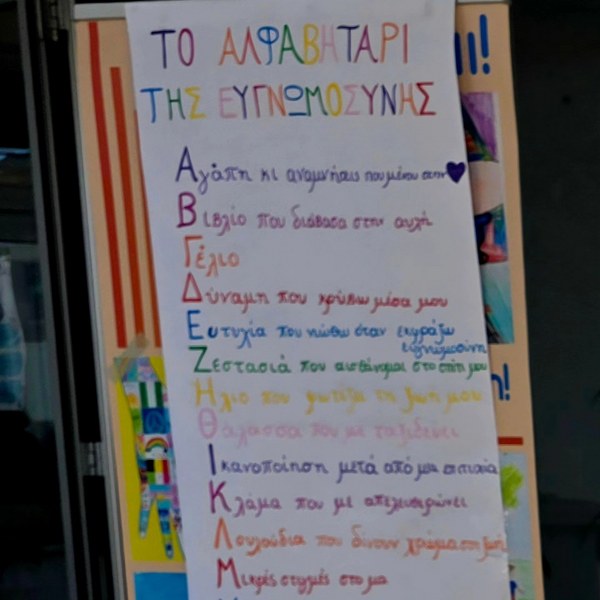 ΤΟ ΑΛΦΑΒΗΤΑΡΙ
ΤΗΣ ΕΥΓΝΩΜΟΣΥΝΗΣ
Αγάπη κι αναμνήσεις που μένουν στην
Βιβλίο που διάβασα στην αυλή
Γέλιο
Δύναμη που κρύβω μέσα μου
Ευτυχία που νιώθω όταν εκφράζω
ευγνωμοσύνη
Ζεστασιά που αισθάνομαι στο σπίτι μου
Ήλιο που φωτίζει τη ζωή μου
Θάλασσα που με ταξιδεύει
Ικανοποίηση μετά από μια επιτυχία
Κλάμα που με απελευθερώνει
Λουλούδια που δίνουν χρώμα στη ζωή
Μικρές στιγμές στο μα